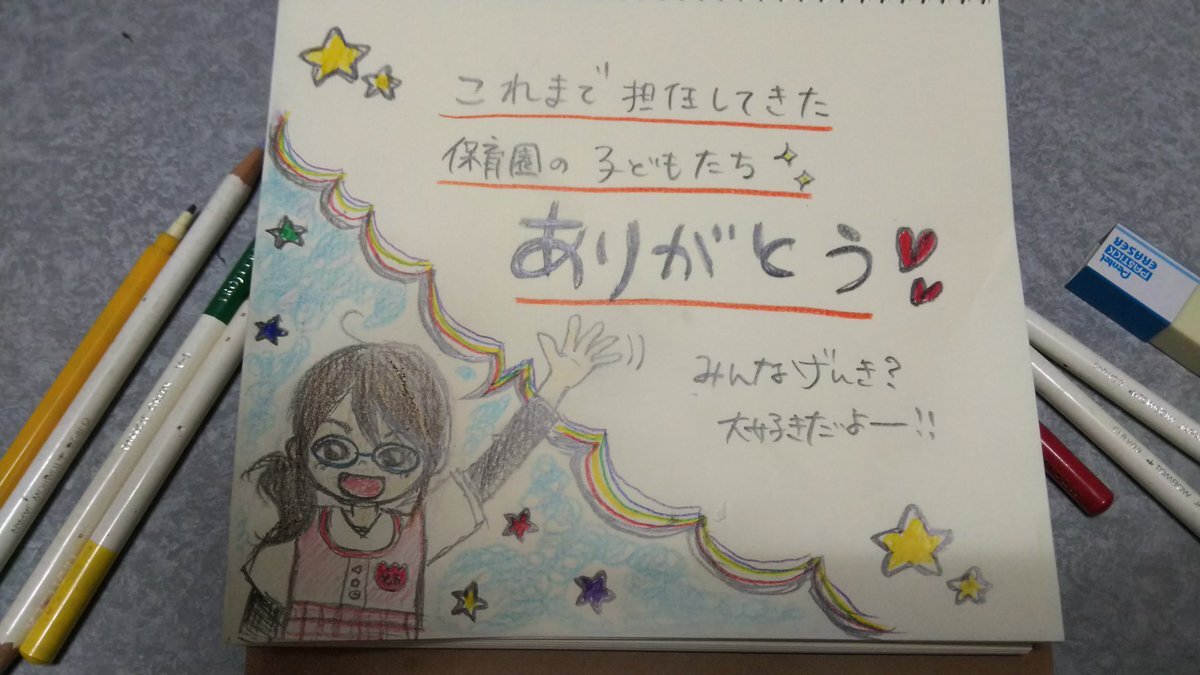 これまで担任してきた
保育園の子どもたち
ありがとう
みんなげんき?
大好きだよー!!
Pentel
ERASER
TOMBOW